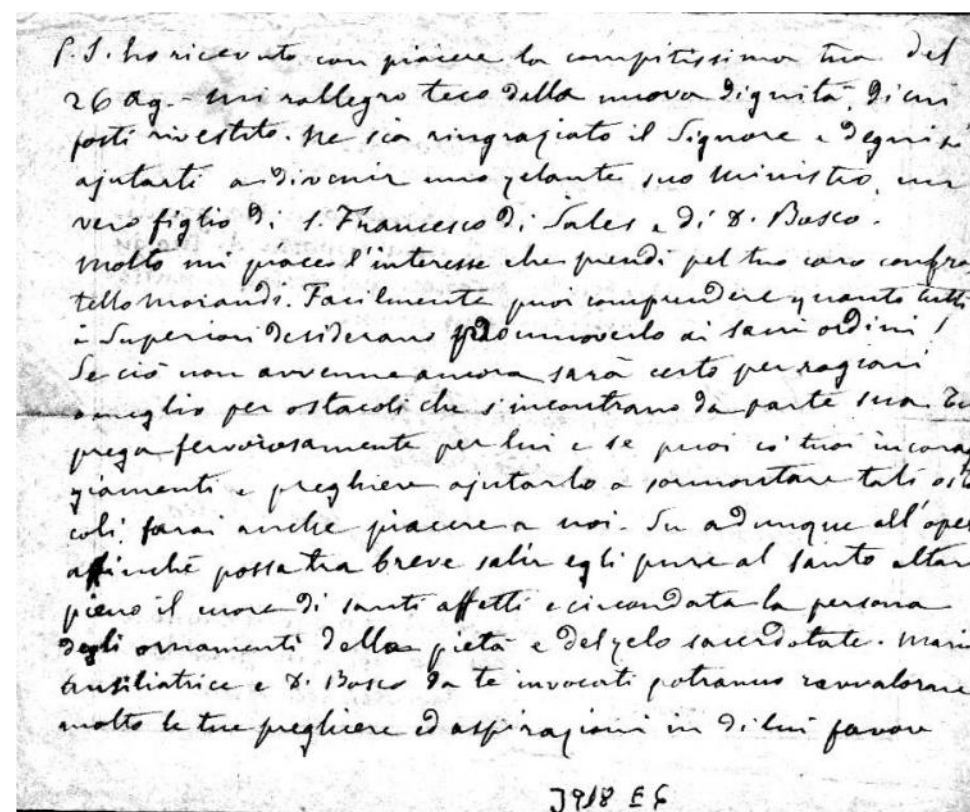 P.S. ho ricevuto con piacere la compitissima tua del
26 Ag. - Mi rallegro teco della nuova dignità, di cui
fosti rivestito. Ne sia ringraziato il Signore e degnisi
ajutarti a divenir uno zelante suo Ministro, un
vero figlio di S. Francesco di Sales e di D. Bosco.
Molto mi piace l'interesse che prendi pel tuo caro confra
tello Morandi. Facilmente puoi comprendere quanto tutti
i Superiori desiderano promuoverlo ai sacri ordini!
Se ciò non avvenne ancora sarà certo per ragioni
o meglio per ostacoli che s'incontrano da parte sua. Tu
prega fervorosamente per lui e se puoi co' tuoi incorag
giamenti e preghiere ajutarlo a sormontare tali osta
coli, farai anche piacere a noi. Su adunque all'oper
affinchè possa tra breve salir egli pure al santo altar
pieno il cuore di santi affetti e circondata la persona
degli ornamenti della pietà e del zelo sacerdotale. Maria
Ausiliatrice e D. Bosco da te invocati potranno ravvalorare
molto le tue preghiere ed aspirazioni in di lui favore
3918 E6